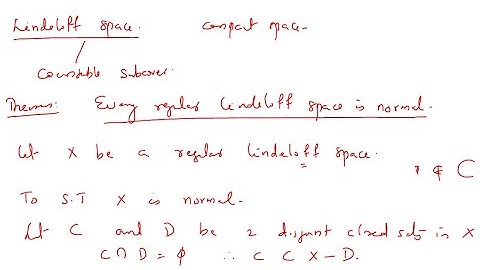 Lindeloff space. compact space.
Countable subcover.
Theorem: Every regular lindeloff space is normal.
Let X be a regular lindeloff space.
x ∉ C
To S.T X is normal.
Let C and D be 2 disjoint closed sets in X
C ∩ D = ϕ ∴ C ⊂ X - D.